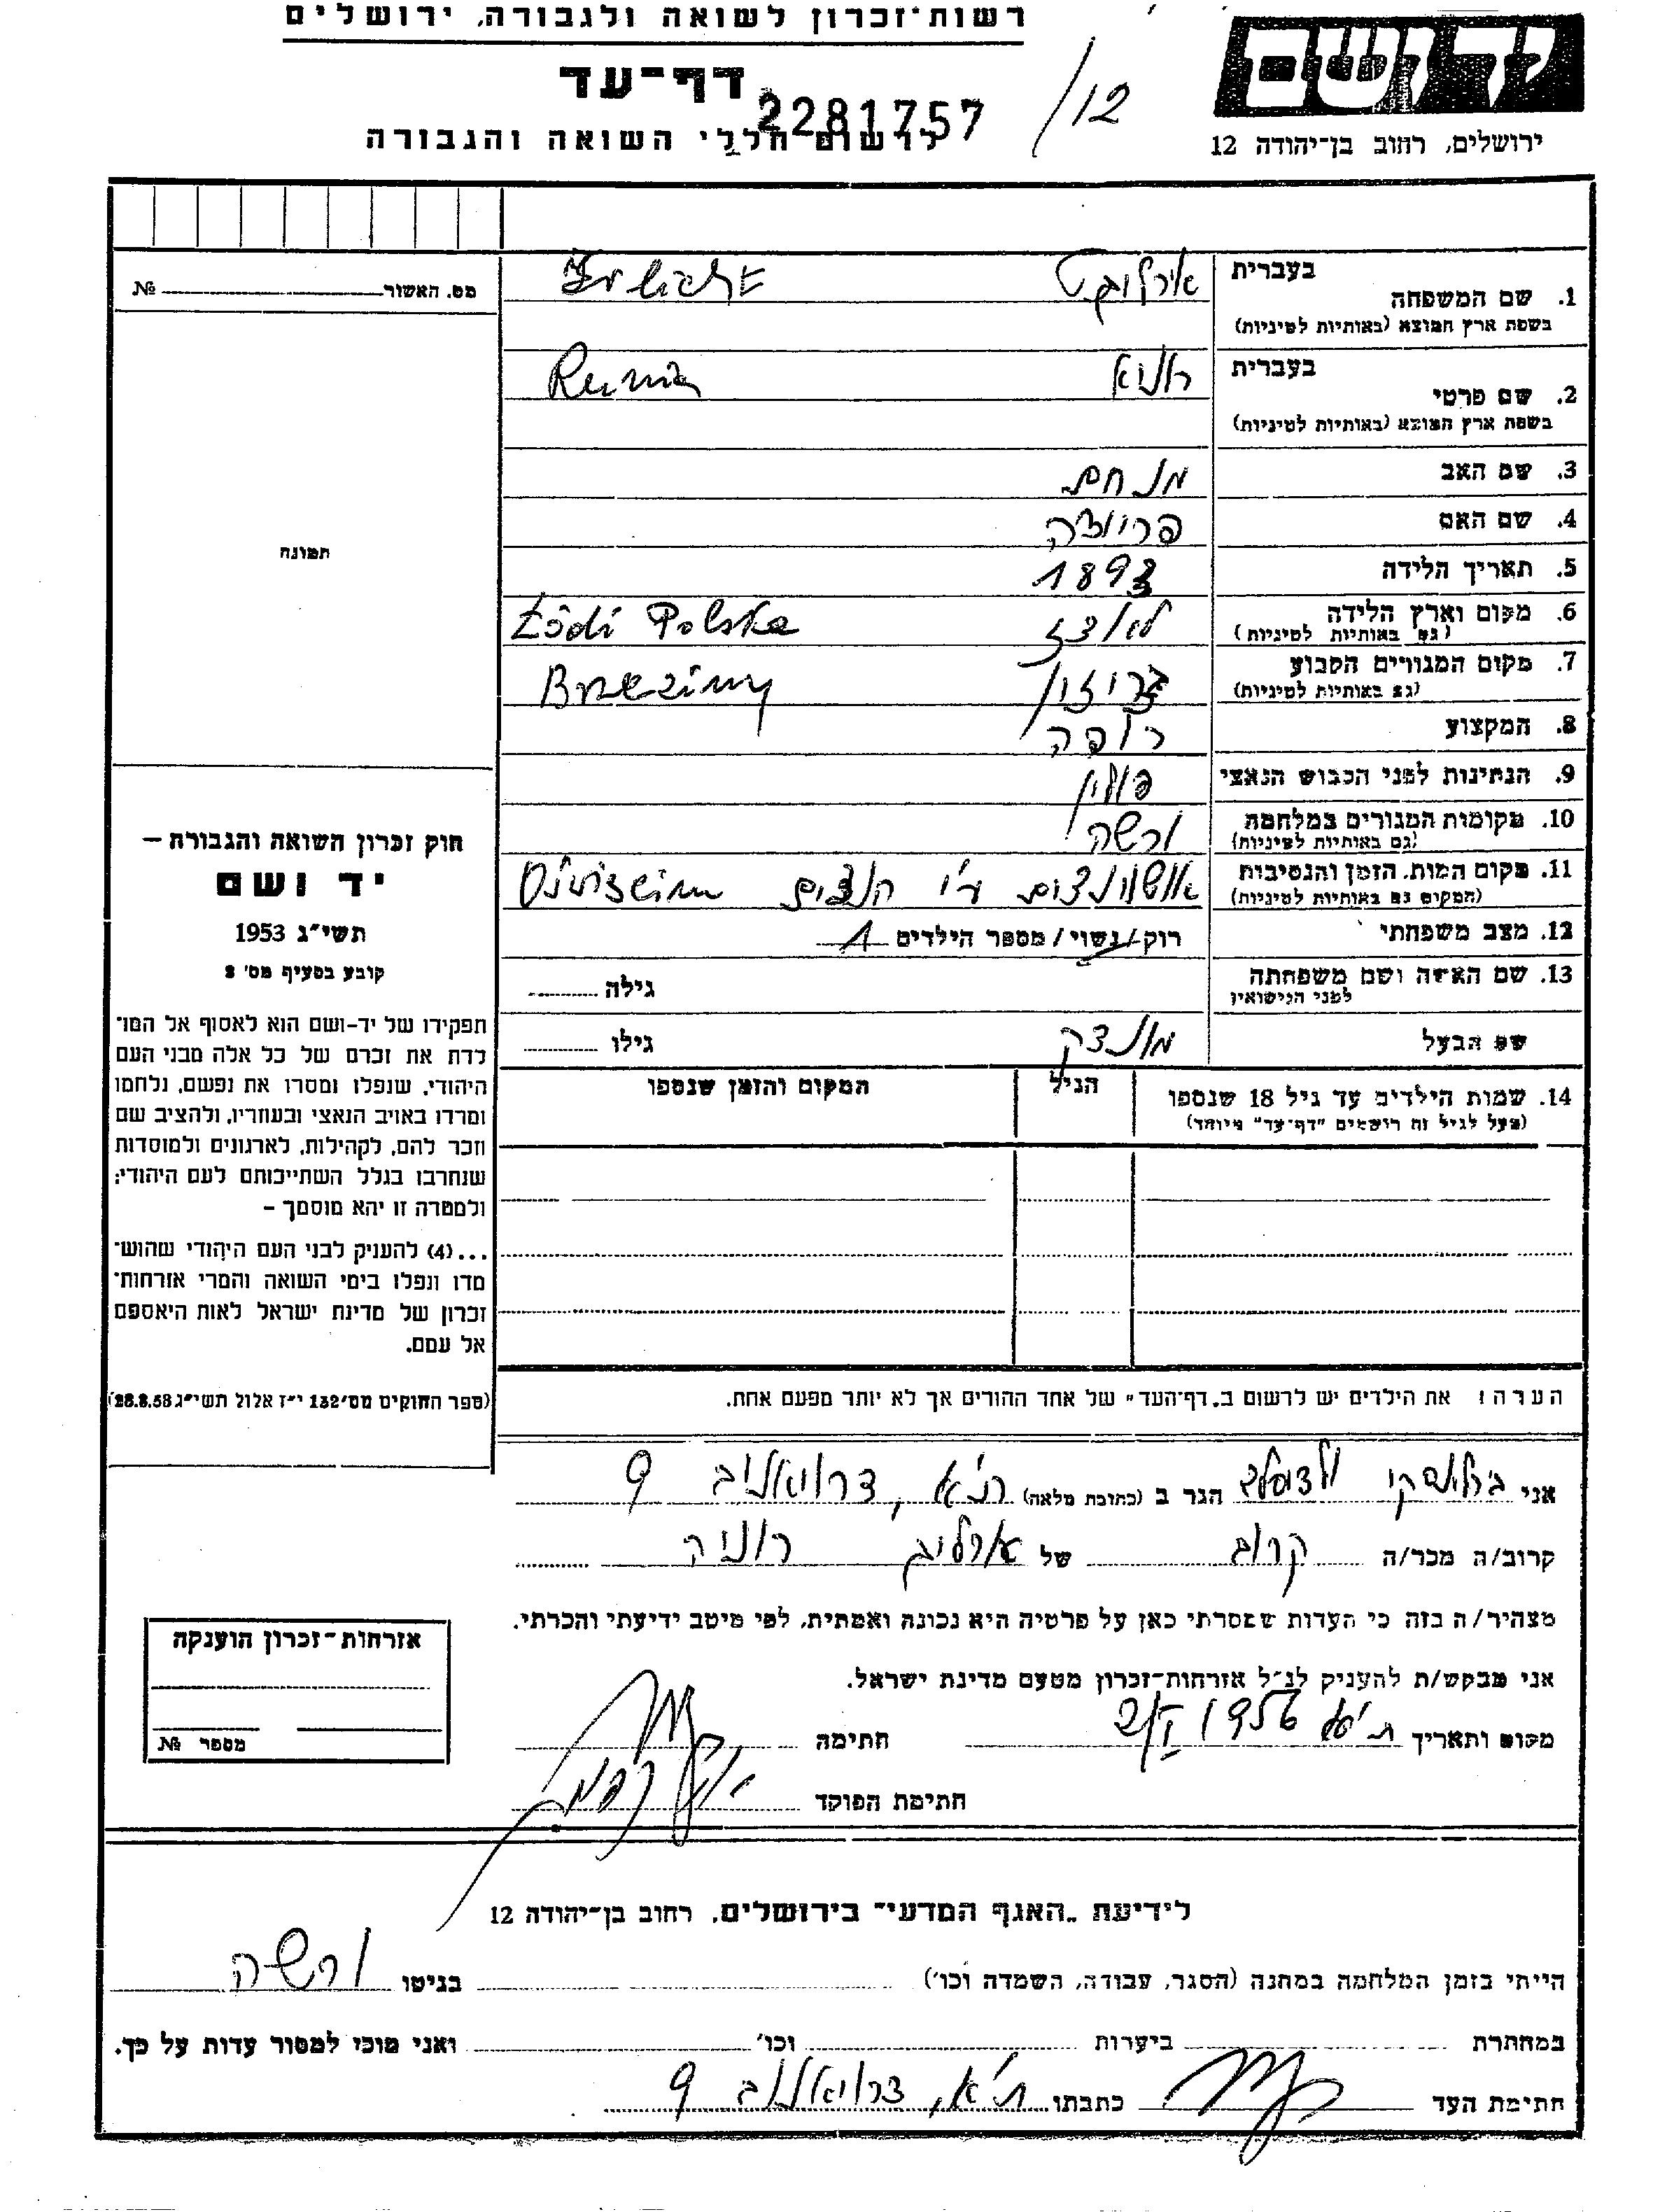 רשות־זכרון לשואה ולגבורה, ירושלים
דף־עד
2281757
/12
לרשום חללי השואה והגבורה
ידושם
ירושלים, רחוב בן־יהודה 12
מס. האשור № 
1. שם המשפחה בעברית
בשפת ארץ המוצא (באותיות לטיניות)
Irlicht
2. שם פרטי בעברית
בשפת ארץ המוצא (באותיות לטיניות)
3. שם האב מנחם
4. שם האם
5. תאריך הלידה 1893
6. מקום וארץ הלידה
(גם באותיות לטיניות)
Łódź Polska
7. מקום המגורים הקבוע
(גם באותיות לטיניות)
Brzeziny
8. המקצוע רופה
9. הנתינות לפני הכבוש הנאצי פולין
10. מקומות המגורים במלחמה ורשה
(גם באותיות לטיניות)
11. מקום המות, הזמן והנסיבות
(המקום גם באותיות לטיניות)
ע״י הנצים
12. מצב משפחתי רוק/נשוי/מספר הילדים 1
13. שם האשה ושם משפחתה
לפני הנישואין
גילה
שם הבעל
גילו
14. שמות הילדים עד גיל 18 שנספו
(מעל לגיל זה רושמים "דף־עד" מיוחד)
הגיל
המקום והזמן שנספו
תמונה
חוק זכרון השואה והגבורה –
יד ושם
תשי״ג 1953
קובע בסעיף מס׳ 2
תפקידו של יד-ושם הוא לאסוף אל המו־
לדת את זכרם של כל אלה מבני העם
היהודי, שנפלו ומסרו את נפשם, נלחמו
ומרדו באויב הנאצי ובעוזריו, ולהציב שם
וזכר להם, לקהילות, לארגונים ולמוסדות
שנחרבו בגלל השתייכותם לעם היהודי;
ולמטרה זו יהא מוסמך –
...(4) להעניק לבני העם היהודי שהוש־
מדו ונפלו בימי השואה והמרי אזרחות־
זכרון של מדינת ישראל לאות היאספם
אל עמם.
(ספר החוקים מס׳ 132 י״ז אלול תשי״ג 28.8.53)
הערה: את הילדים יש לרשום ב„דף־העד" של אחד ההורים אך לא יותר מפעם אחת.
אני
הגר ב (כתובת מלאה) ת״א, דרויאנוב 9
קרוב/ה מכר/ה קרוב של ארליך רוניה
מצהיר/ה בזה כי העדות שמסרתי כאן על פרטיה היא נכונה ואמתית, לפי מיטב ידיעתי והכרתי.
אני מבקש/ת להעניק לנ״ל אזרחות־זכרון מטעם מדינת ישראל.
מקום ותאריך ת״א 1956
חתימה
חתימת הפוקד
אזרחות־זכרון הוענקה
מספר №
לידיעת „האגף המדעי" בירושלים, רחוב בן־יהודה 12
הייתי בזמן המלחמה במחנה (הסגר, עבודה, השמדה וכו׳) בגיטו ורשה
במחתרת ביערות וכו׳ ואני מוכן למסור עדות על כך.
חתימת העד כתבתו ת״א, דרויאנוב 9